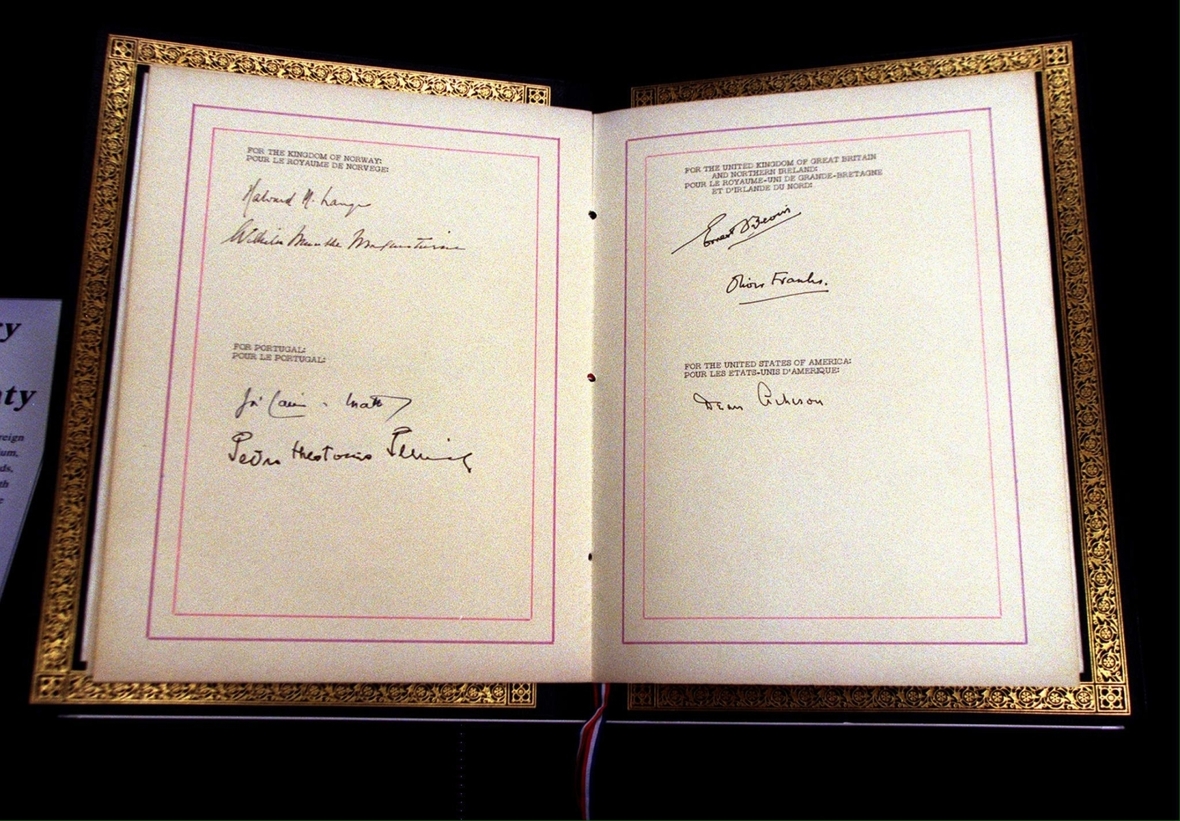 FOR THE KINGDOM OF NORWAY:
POUR LE ROYAUME DE NORVEGE:
Halvard M. Lange
Wilhelm Munthe Morgenstierne
FOR PORTUGAL:
POUR LE PORTUGAL:
Pedro Theotonio Pereira
FOR THE UNITED KINGDOM OF GREAT BRITAIN
AND NORTHERN IRELAND:
POUR LE ROYAUME-UNI DE GRANDE-BRETAGNE
ET D'IRLANDE DU NORD:
Ernest Bevin
Oliver Franks.
FOR THE UNITED STATES OF AMERICA:
POUR LES ETATS-UNIS D'AMERIQUE:
Dean Acheson
reign
ium,
ds,
th